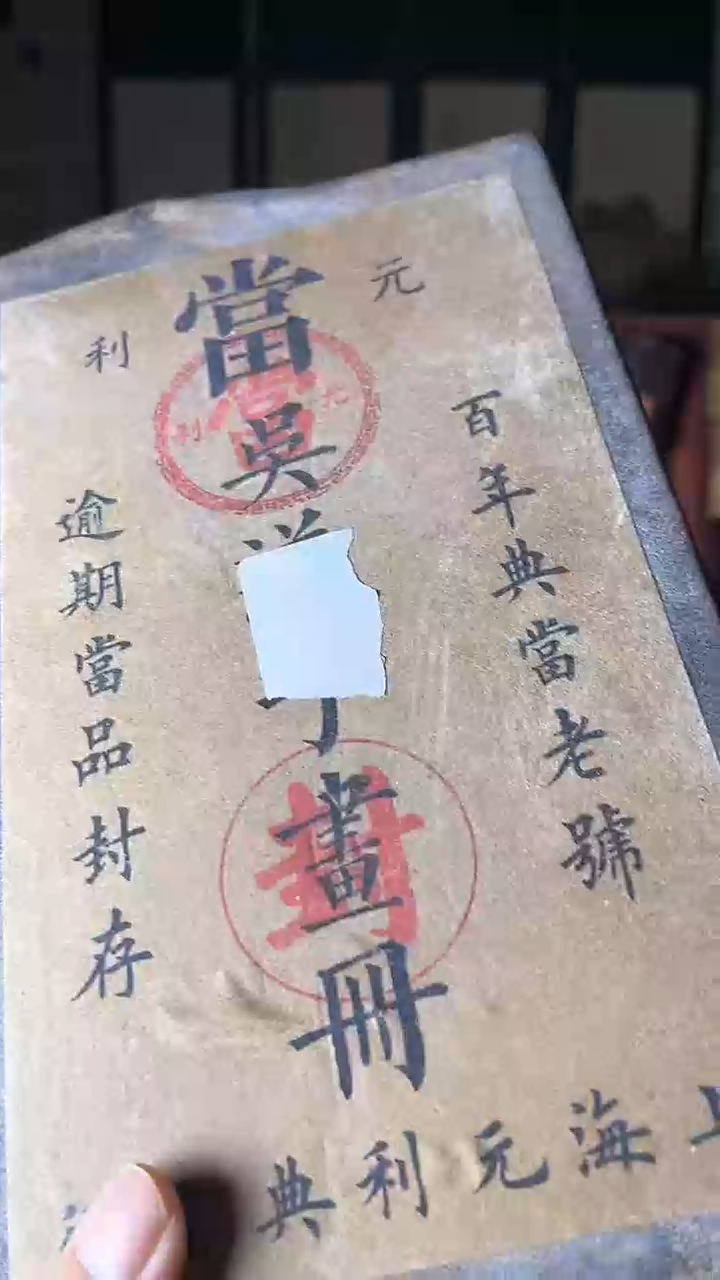 元利
百年典當老號
當吳畫冊
逾期當品封存
上海元利典
元當利
封